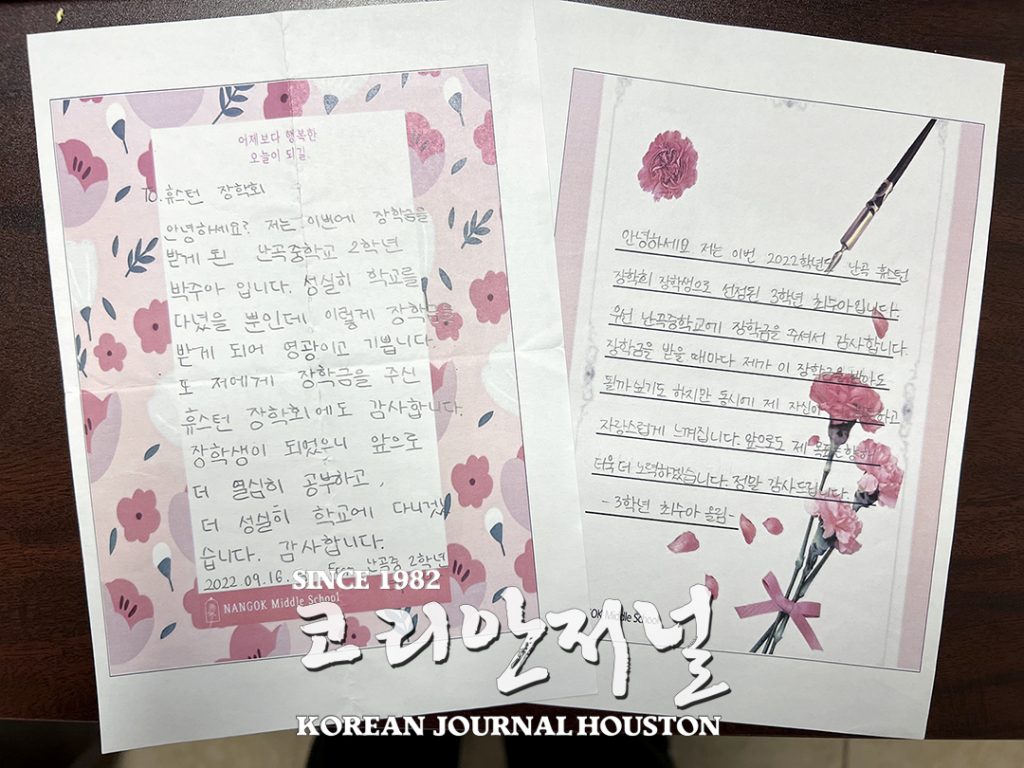 어제보다 행복한
오늘이 되길
To. 휴스턴 장학회
안녕하세요? 저는 이번에 장학금을
받게 된 난곡중학교 2학년
박주아 입니다. 성실히 학교를
다녔을 뿐인데 이렇게 장학금을
받게 되어 영광이고 기쁩니다.
또 저에게 장학금을 주신
휴스턴 장학회에도 감사합니다.
장학생이 되었으니 앞으로
더 열심히 공부하고,
더 성실히 학교에 다니겠
습니다. 감사합니다.
2022.09.16. From 난곡중 2학년
NANGOK Middle School
안녕하세요 저는 이번 2022학년도 난곡 휴스턴
장학회 장학생으로 선정된 3학년 최수아입니다.
우선 난곡중학교에 장학금을 주셔서 감사합니다.
장학금을 받을 때마다 제가 이 장학금을 받아도
될까 싶기도 하지만 동시에 제 자신이 하고
자랑스럽게 느껴집니다. 앞으로도 제 목표를 향해
더욱 더 노력하겠습니다. 정말 감사드립니다.
- 3학년 최수아 올림 -
GOK Middle School
SINCE 1982
코리안저널
KOREAN JOURNAL HOUSTON